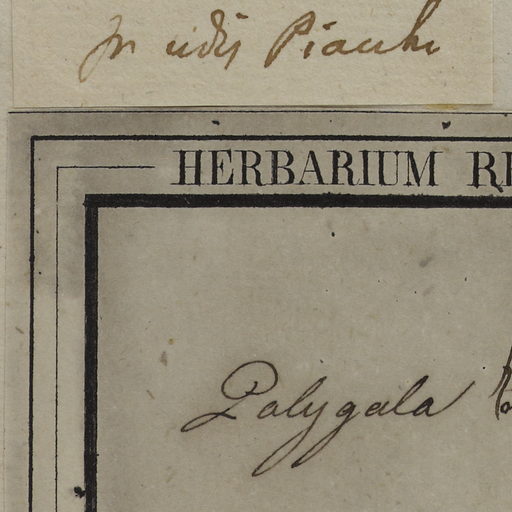 In udis Piauhi
HERBARIUM
Polygala